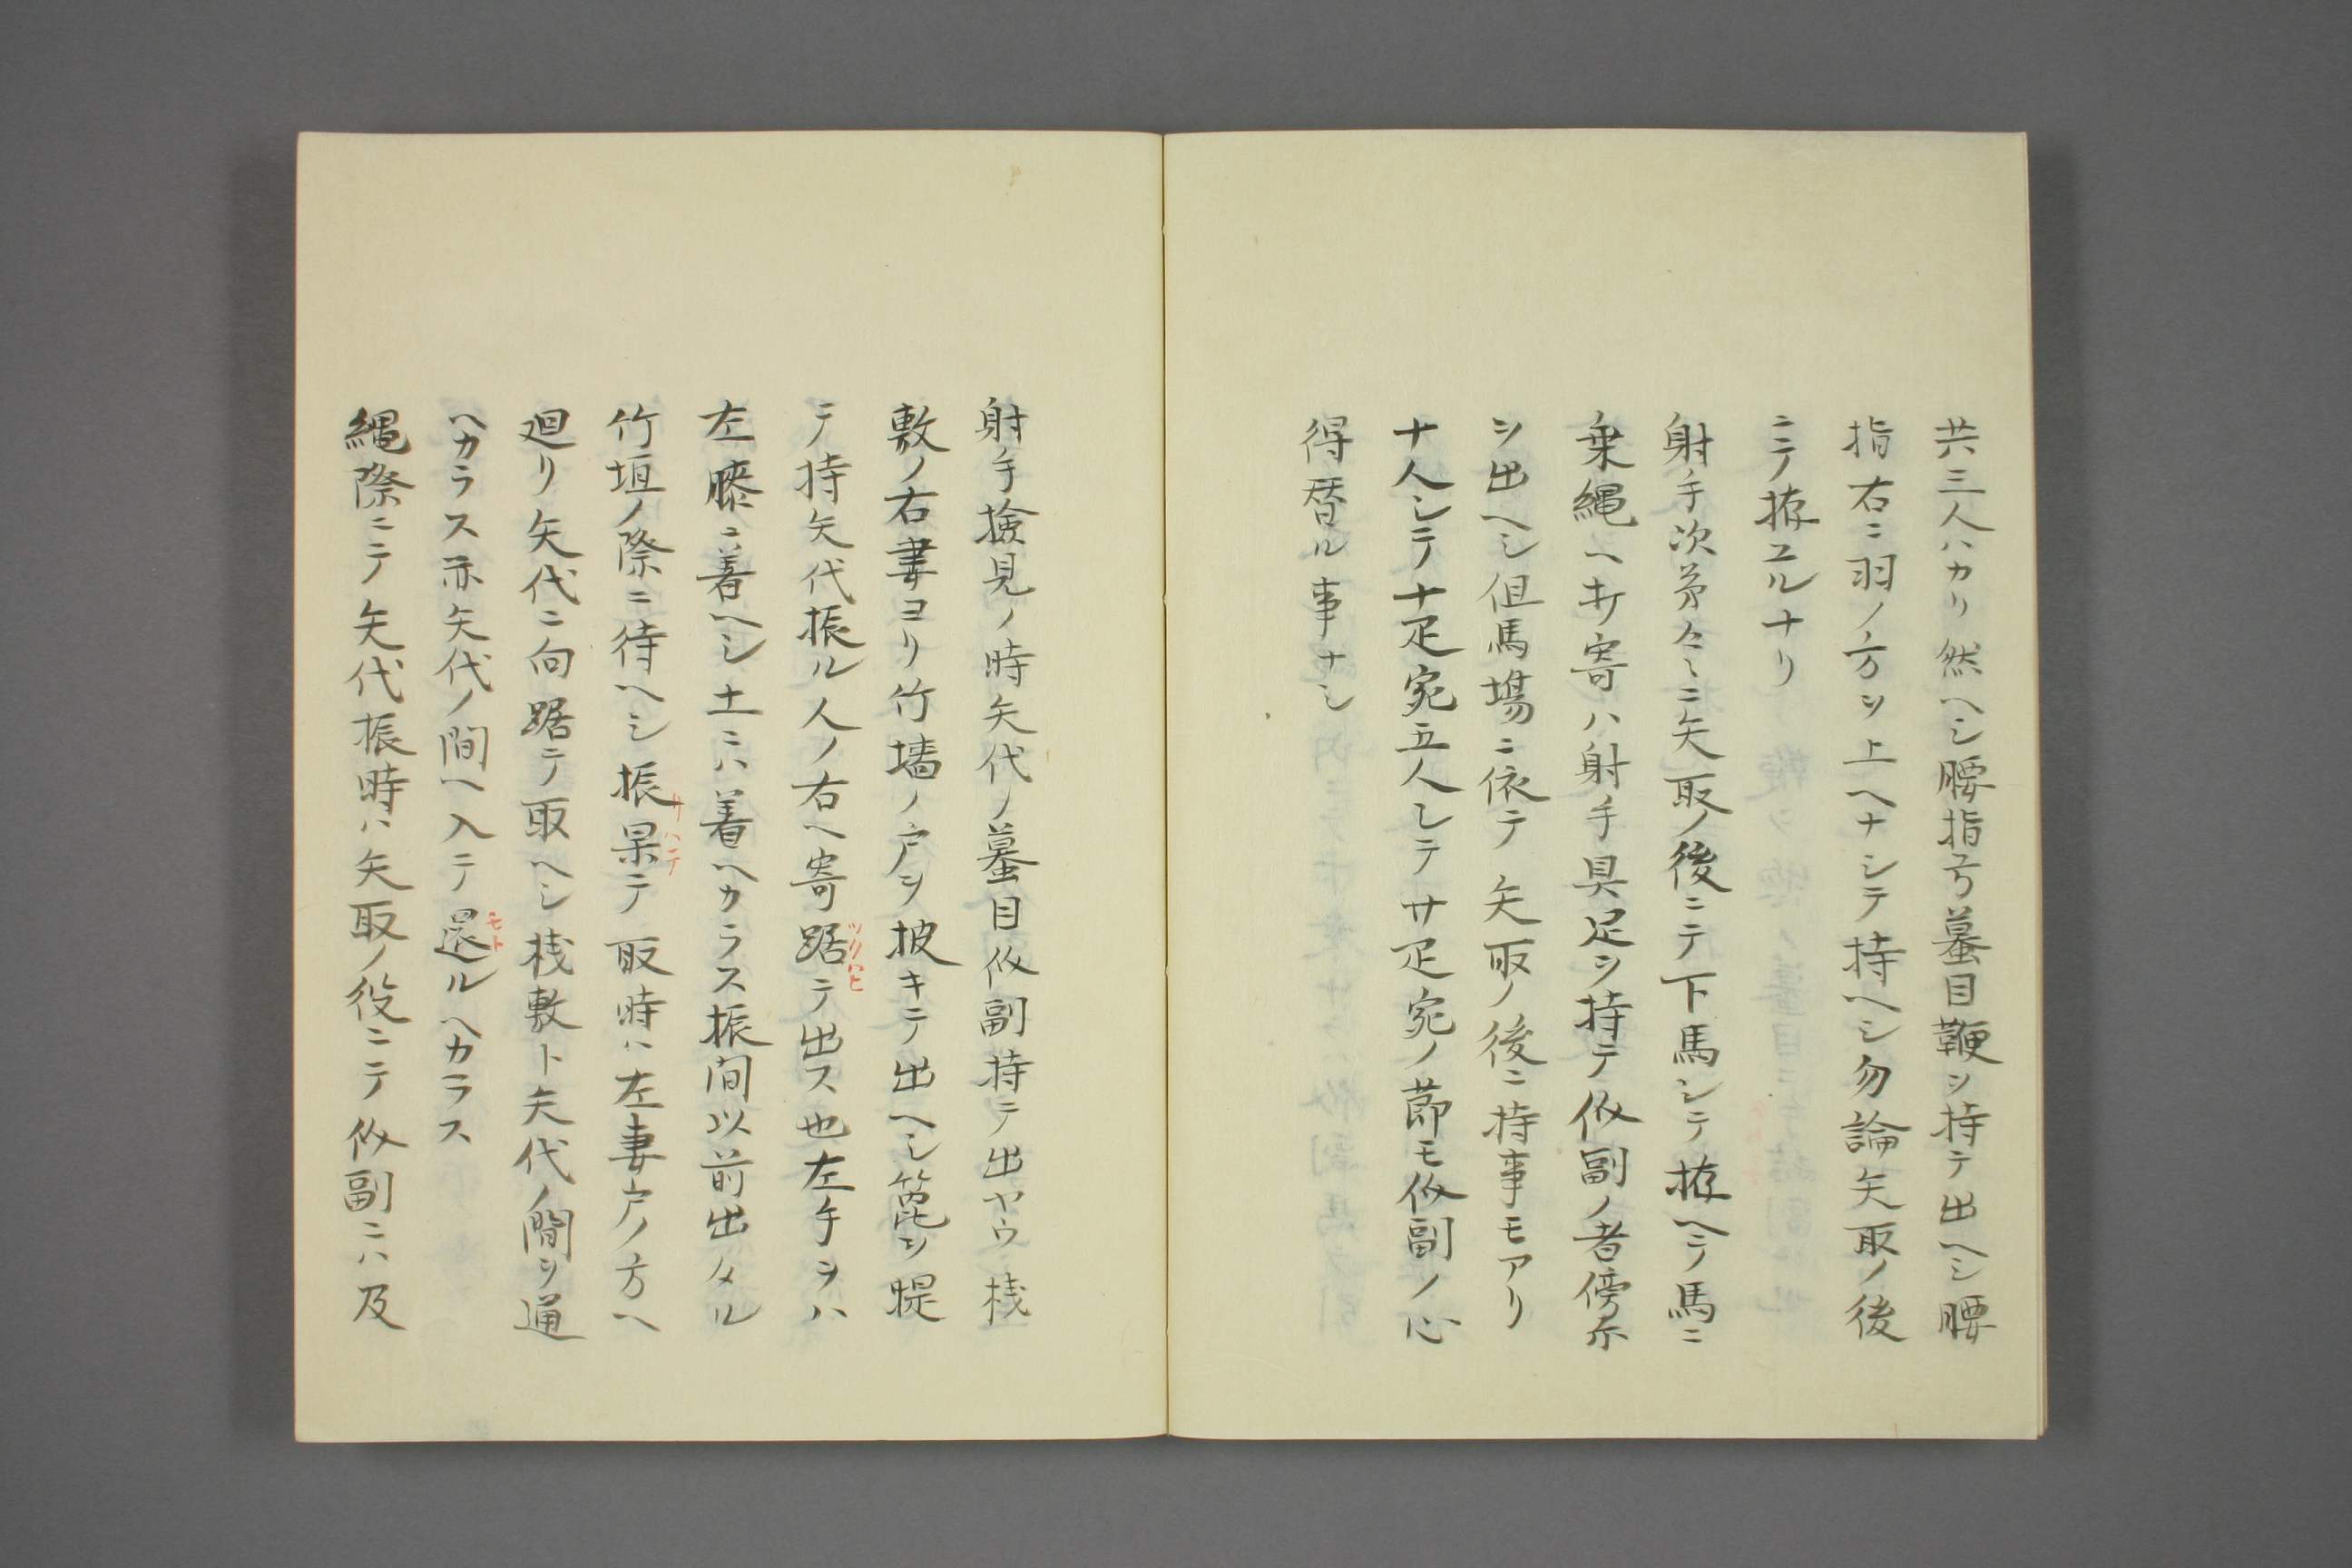 共三人ハカリ然ヘシ腰指号蟇目鞭ヲ持テ出ヘシ腰
指右ニ羽ノ方ヲ上ヘナシテ持ヘシ勿論矢取ノ後
ニテ拵ユルナリ
射手次第々々ニ矢取ノ後ニテ下馬シテ拵ヘテ馬ニ
乗縄ヘ打寄ハ射手具足ヲ持テ仪副ノ者傍示
ヲ出ヘシ但馬場ニ依テ矢取ノ後ニ持事モアリ
十人シテ十疋宛五人シテ廿疋宛ノ節モ仪副ノ心
得替ル事ナシ
射手検見ノ時矢代ノ蟇目仪副持テ出ヤウ桟
敷ノ右妻ヨリ竹墻ノ戸ヲ披キテ出ヘシ箆ヲ提
テ持矢代振ル人ノ右ヘ寄踞テ出ス也左手ヲハ
ツクハヒ
左膝ニ着ヘシ土ニハ着ヘカラス振間以前出タル
竹垣ノ際ニ待ヘシ振杲テ取時ハ左妻戸ノ方ヘ
サハテ
廻リ矢代ニ向踞テ取ヘシ桟敷ト矢代ノ間ヲ通
ヘカラス亦矢代ノ間ヘ入テ還ルヘカラス
モト
縄際ニテ矢代振時ハ矢取ノ役ニテ仪副ニハ及